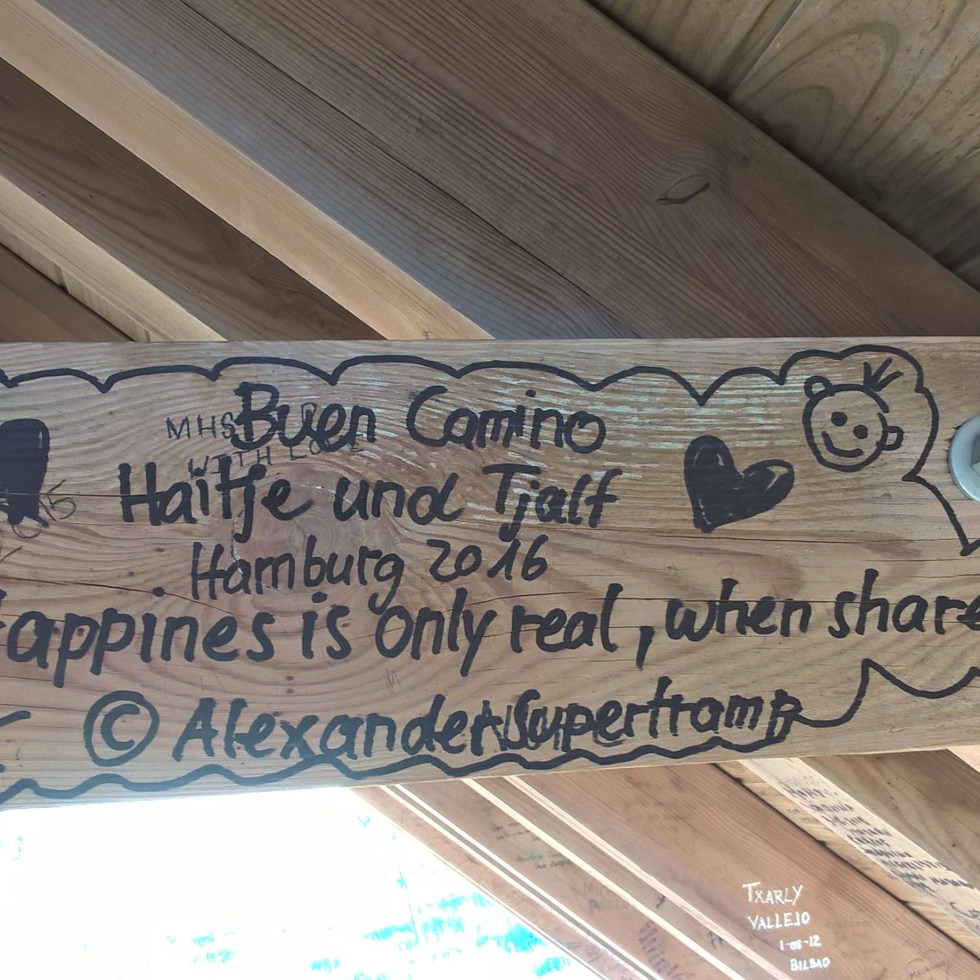 Buen Camino
MHS
WITH LOVE
Haitje und Tjalf
Hamburg 2016
Happines is only real, when share
© Alexander Supertramp
TXARLY
VALLEJO
1-08-12
BILBAO